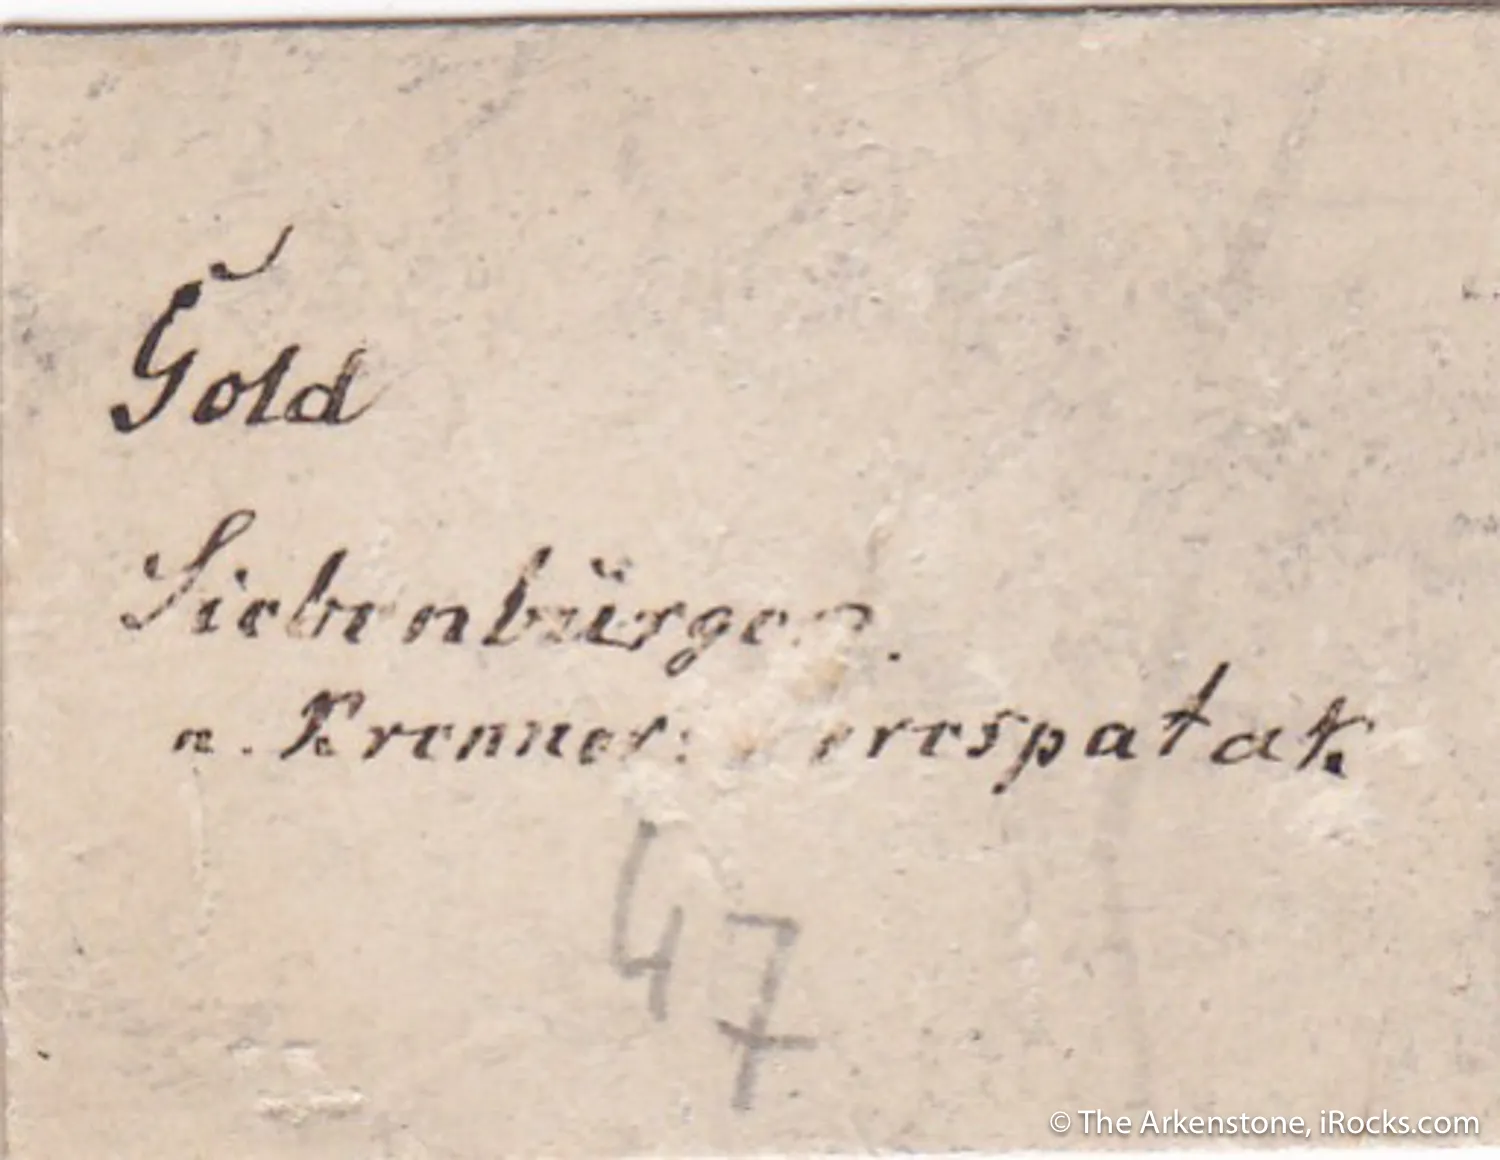 Gold
Siebenbürgen.
n. Krenner: Verespatak
47
© The Arkenstone, iRocks.com